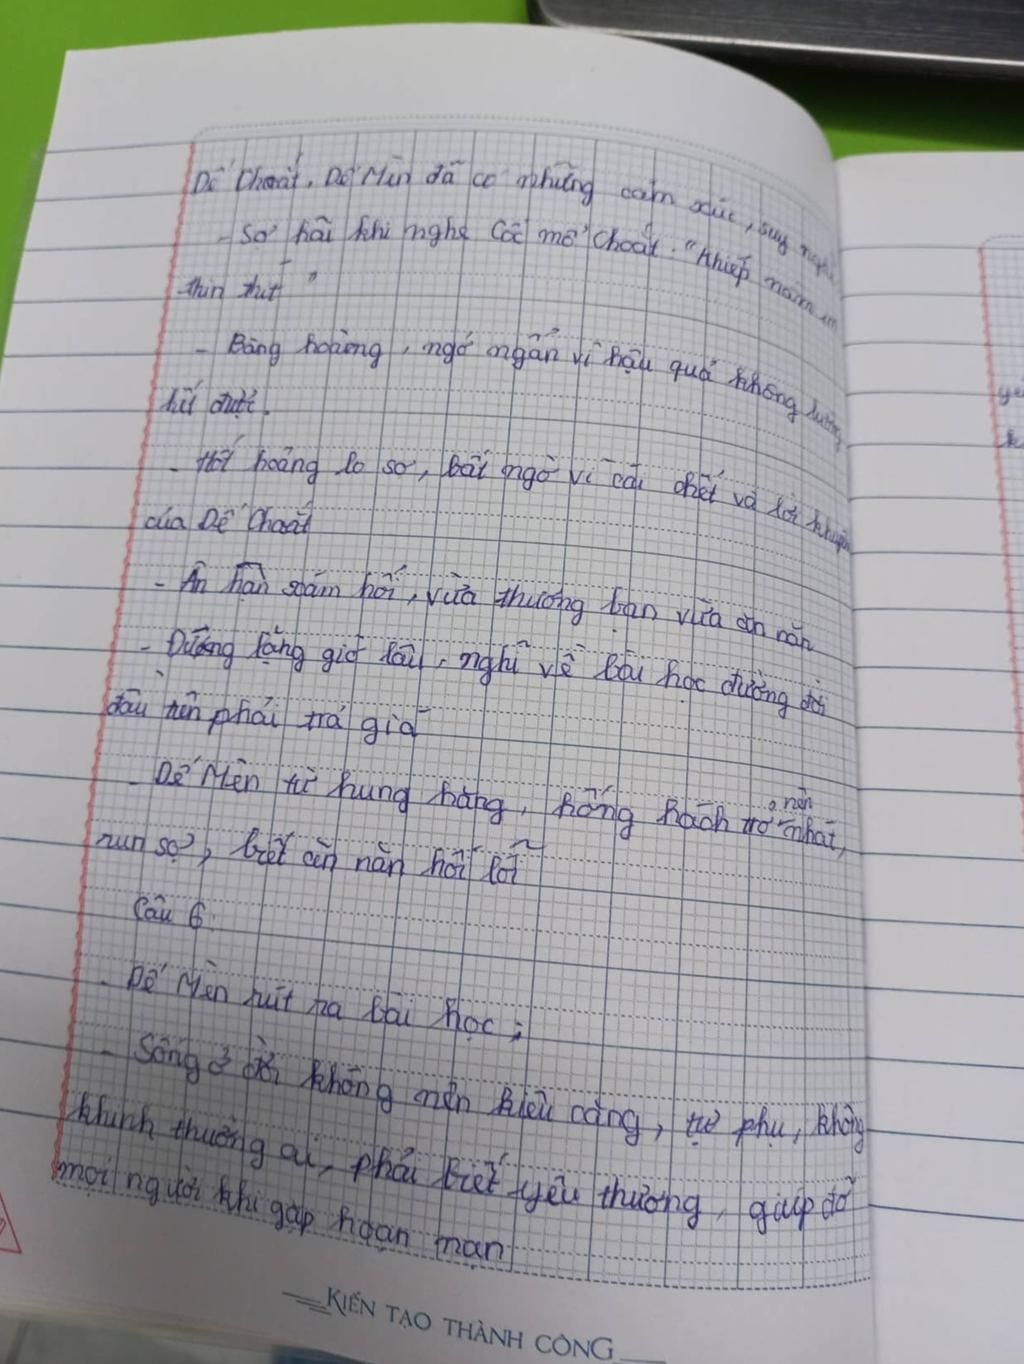 Dế Choắt, Dế Mèn đã có những cảm xúc, suy nghĩ
- Sợ hãi khi nghe Cốc mổ Choắt: "khiếp nằm im
thin thít"
- Bàng hoàng, ngớ ngẩn vì hậu quả không lường
hết được.
- Hốt hoảng lo sợ, bất ngờ vì cái chết và lời khuyên
của Dế Choắt
- Ân hận sám hối, vừa thương bạn vừa ăn năn
- Đứng lặng giờ lâu, nghĩ về bài học đường đời
đầu tiên phải trả giá
- Dế Mèn từ hung hăng, hống hách trở nên nhát,
run sợ, biết ăn năn hối lỗi
Câu 6:
- Dế Mèn rút ra bài học:
- Sống ở đời không nên kiêu căng, tự phụ, không
khinh thường ai, phải biết yêu thương, giúp đỡ
mọi người khi gặp hoạn nạn
KIẾN TẠO THÀNH CÔNG